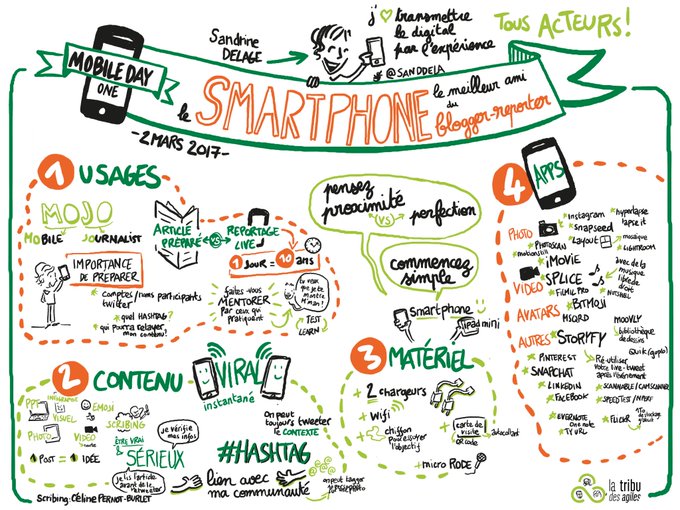 Sandrine
DELAGE
j'
transmettre
le digital
par l'expérience
@SANDDELA
TOUS ACTEURS!
MOBILE DAY
ONE
le SMARTPHONE le meilleur ami
du
blogger-reporter
-2 MARS 2017-
1 USAGES
MOJO
MOBILE JOURNALIST
IMPORTANCE
DE PREPARER
comptes/noms participants
twitter
quel HASHTAG?
qui pourra relayer
mon contenu!
ARTICLE
PRÉPARÉ
VS
REPORTAGE
LIVE
1 JOUR = 10 ANS
faites-vous
MENTORER
Par ceux qui
pratiquent
TEST
LEARN
pensez
proximité
VS
perfection
commencez
simple
Smartphone
ipad mini
2 CONTENU
VIRAL
instantané
PPT
INFOGRAPHIE
VISUEL
EMOJI
SCRIBING
PHOTO
VIDEO
1 POST = 1 IDÉE
ÊTRE VRAI
&
SÉRIEUX
je vérifie
mes infos
je lis l'article
avant de le
retweeter
on peut
toujours tweeter
le CONTEXTE
#HASHTAG
lien avec
ma communauté
on peut tagger
3 MATÉRIEL
+ 2 chargeurs
+ Wifi
+ chiffon
pour essuyer
l'objectif
+ carte de
visite
QR code
autocollant
+ micro RODE
4 APPS
PHOTO
instagram
snapseed
Layout
hyperlapse
lapse it
mosaïque
LIGHTROOM
PHOTOSCAN
VIDEO
iMOVIE
SPLICE
FILMIC PRO
avec de la
musique
libre de
droit
NUTSHELL
AVATARS
BITMOJI
MSQRD
AUTRES
STORYFY
MOOVLY
bibliothèque
de dessins
PINTEREST
SNAPCHAT
LINKEDIN
FACEBOOK
EVERNOTE
one note
Ré-utiliser
votre live-tweet
après l'événement
SCANNABLE/CAMSCANNER
FLICKR
Scribing: Céline PERNOT-BURLET
la tribu
des agiles